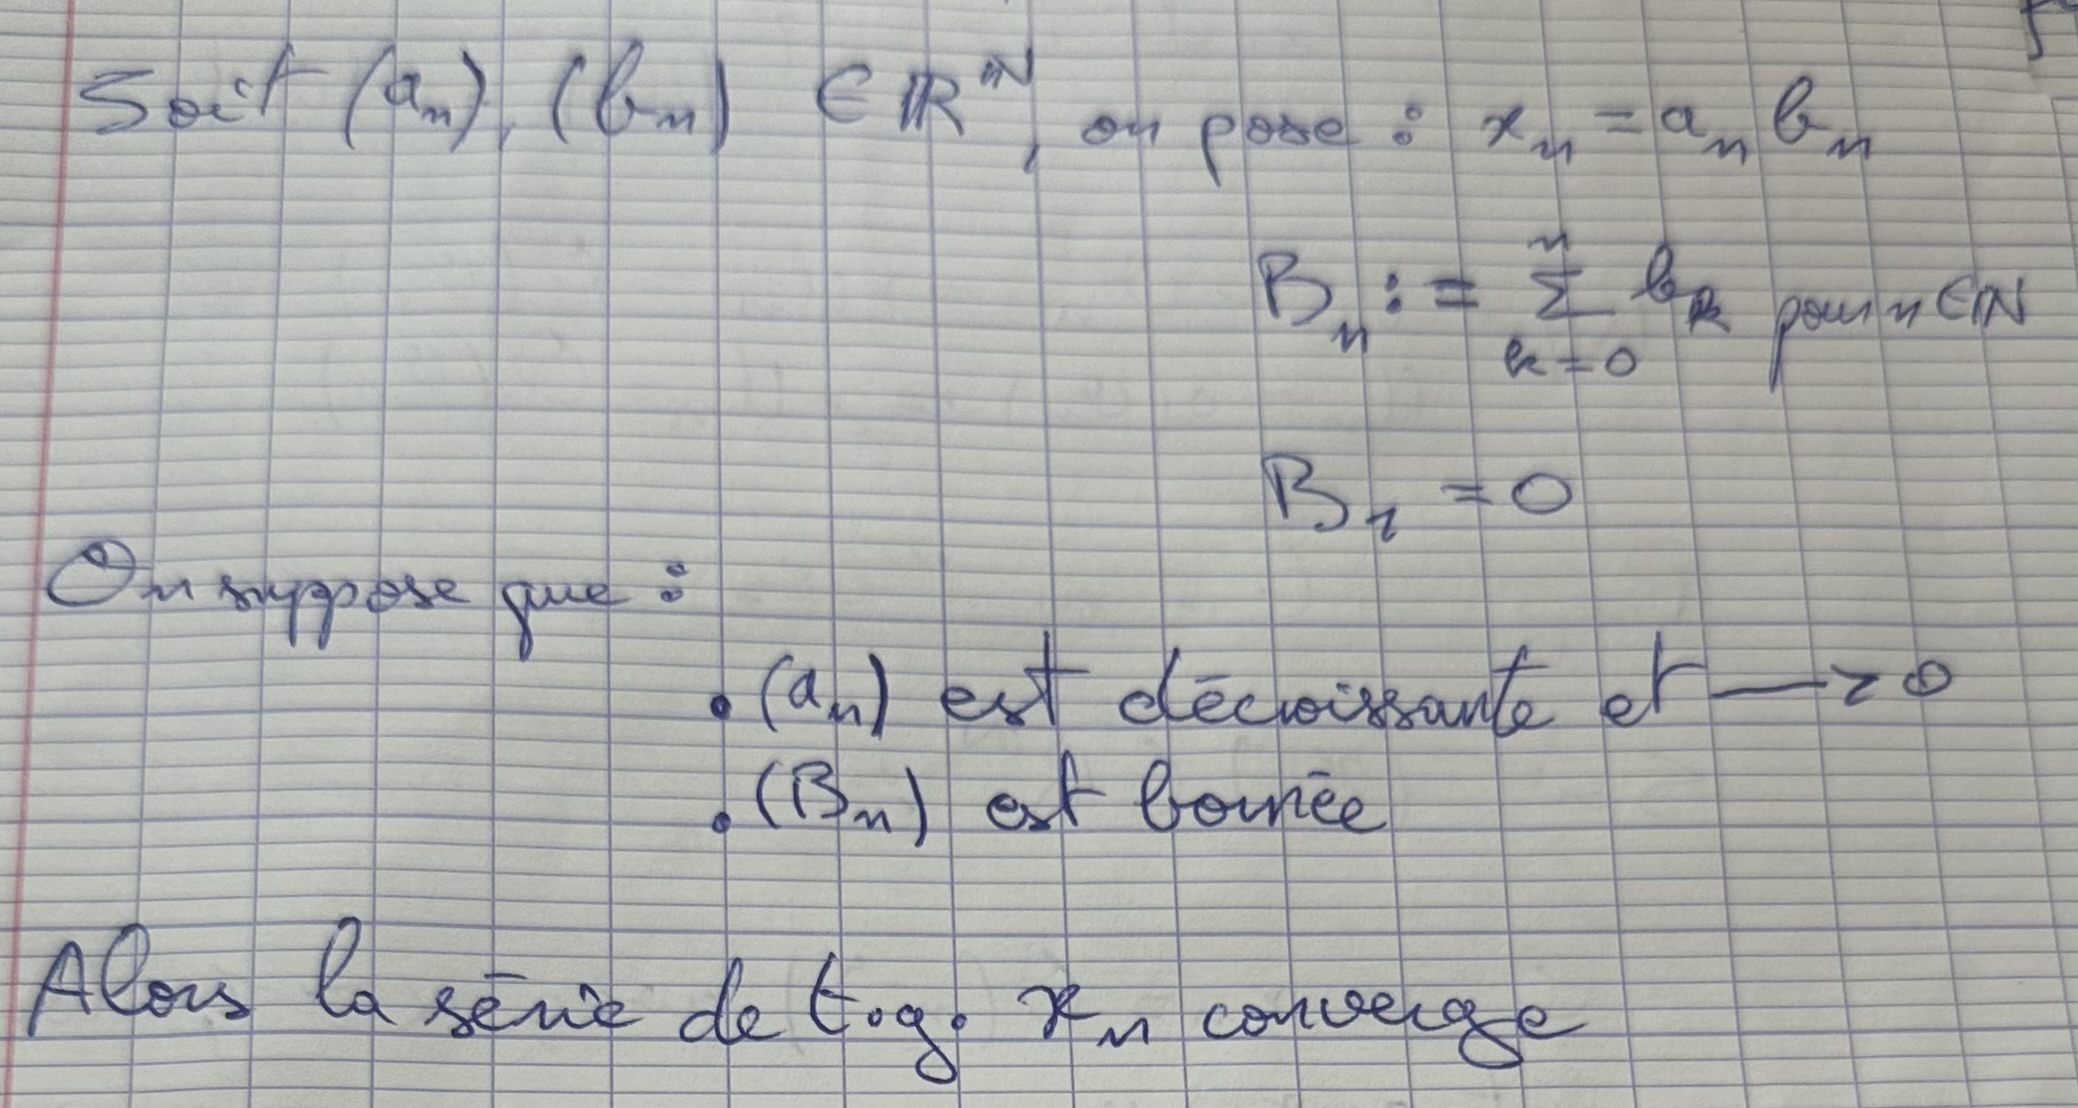 Soit (a_n), (b_n) ∈ ℝ^ℕ, on pose : x_n = a_n b_n
B_n := ∑_{k=0}^{n} b_k pour n ∈ ℕ
B_{-1} = 0
On suppose que :
• (a_n) est décroissante et → 0
• (B_n) est bornée
Alors la série de t.g. x_n converge